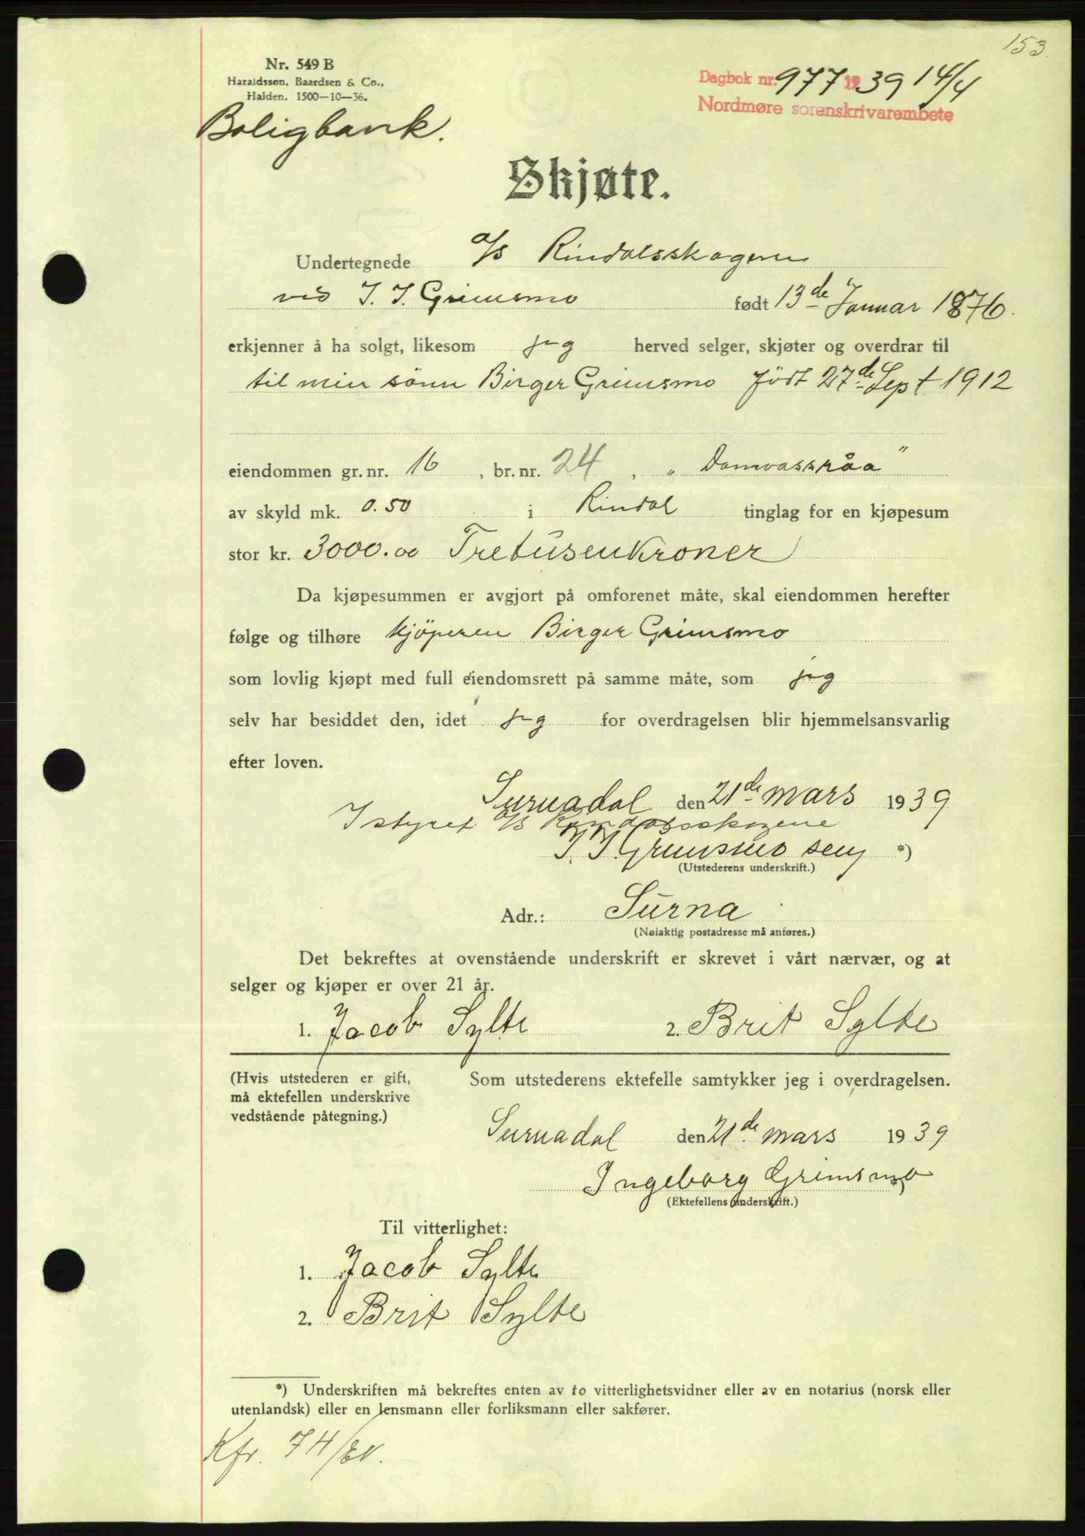 153.
Nr. 549 B
Haraldssen, Baardsen & Co.,
Halden. 1500—10—36.
Dagbok nr. 977 1939 14/4
Nordmøre sorenskrivarembete
Boligbank.
Skjøte.
Undertegnede a/s Rindalsskogene
ved J. J. Grimsmo født 13de Januar 1876.
erkjenner å ha solgt, likesom jeg herved selger, skjøter og overdrar til
til min sönn Birger Grimsmo født 27de Sept 1912
eiendommen gr. nr. 16, br. nr. 24, "Damvassråa"
av skyld mk. 0.50 i Rindal tinglag for en kjøpesum
stor kr. 3000.00 Tretusenkroner
Da kjøpesummen er avgjort på omforenet måte, skal eiendommen herefter
følge og tilhøre kjöperen Birger Grimsmo
som lovlig kjøpt med full eiendomsrett på samme måte, som jeg
selv har besiddet den, idet jeg for overdragelsen blir hjemmelsansvarlig
efter loven.
Surnadal den 21de mars 1939
I styret a/s Rindalsskogene
J. J. Grimsmo sen *)
(Utstederens underskrift.)
Adr.: Surna
(Nøiaktig postadresse må anføres.)
Det bekreftes at ovenstående underskrift er skrevet i vårt nærvær, og at
selger og kjøper er over 21 år.
1. Jacob Sylte 2. Brit Sylte
(Hvis utstederen er gift,
må ektefellen underskrive
vedstående påtegning.)
Som utstederens ektefelle samtykker jeg i overdragelsen.
Surnadal den 21de mars 1939
Ingeborg Grimsmo *)
(Ektefellens underskrift.)
Til vitterlighet:
1. Jacob Sylte
2. Brit Sylte
*) Underskriften må bekreftes enten av to vitterlighetsvidner eller av en notarius (norsk eller
utenlandsk) eller en lensmann eller forliksmann eller sakfører.
Kfr. 74/